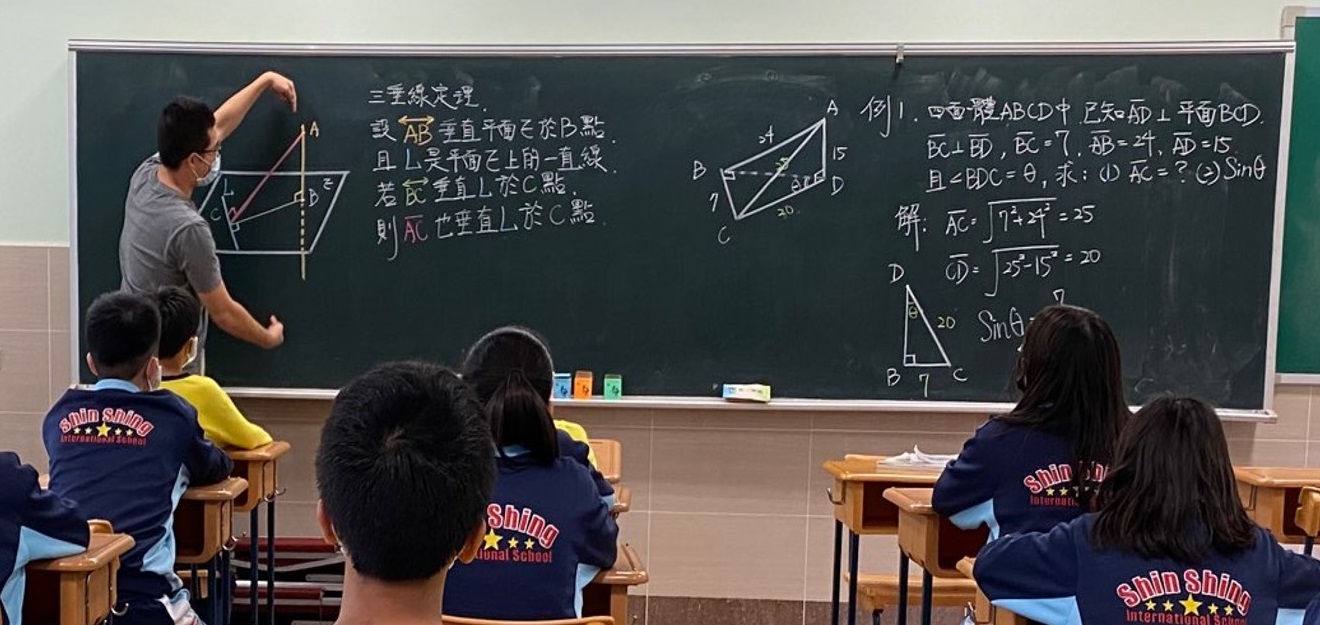 三垂線定理.
設 AB 垂直平面E於B點.
且 L是平面E上的一直線.
若 BC 垂直L於C點.
則 AC 也垂直L於C點.
A
B
C
L
E
A
24
25
15
B
D
θ
7
20
C
例1. 四面體ABCD中, 已知AD⊥平面BCD.
BC⊥BD, BC=7, AB=24, AD=15.
且∠BDC=θ, 求: (1) AC=? (2) Sinθ
解: AC=√7²+24²=25
CD=√25²-15²=20
D
θ
20
B
7
C
Sinθ=7
Shin Shing
International School
Shing
tional School
Shin Shi
Internatio
Shin Shing
International School